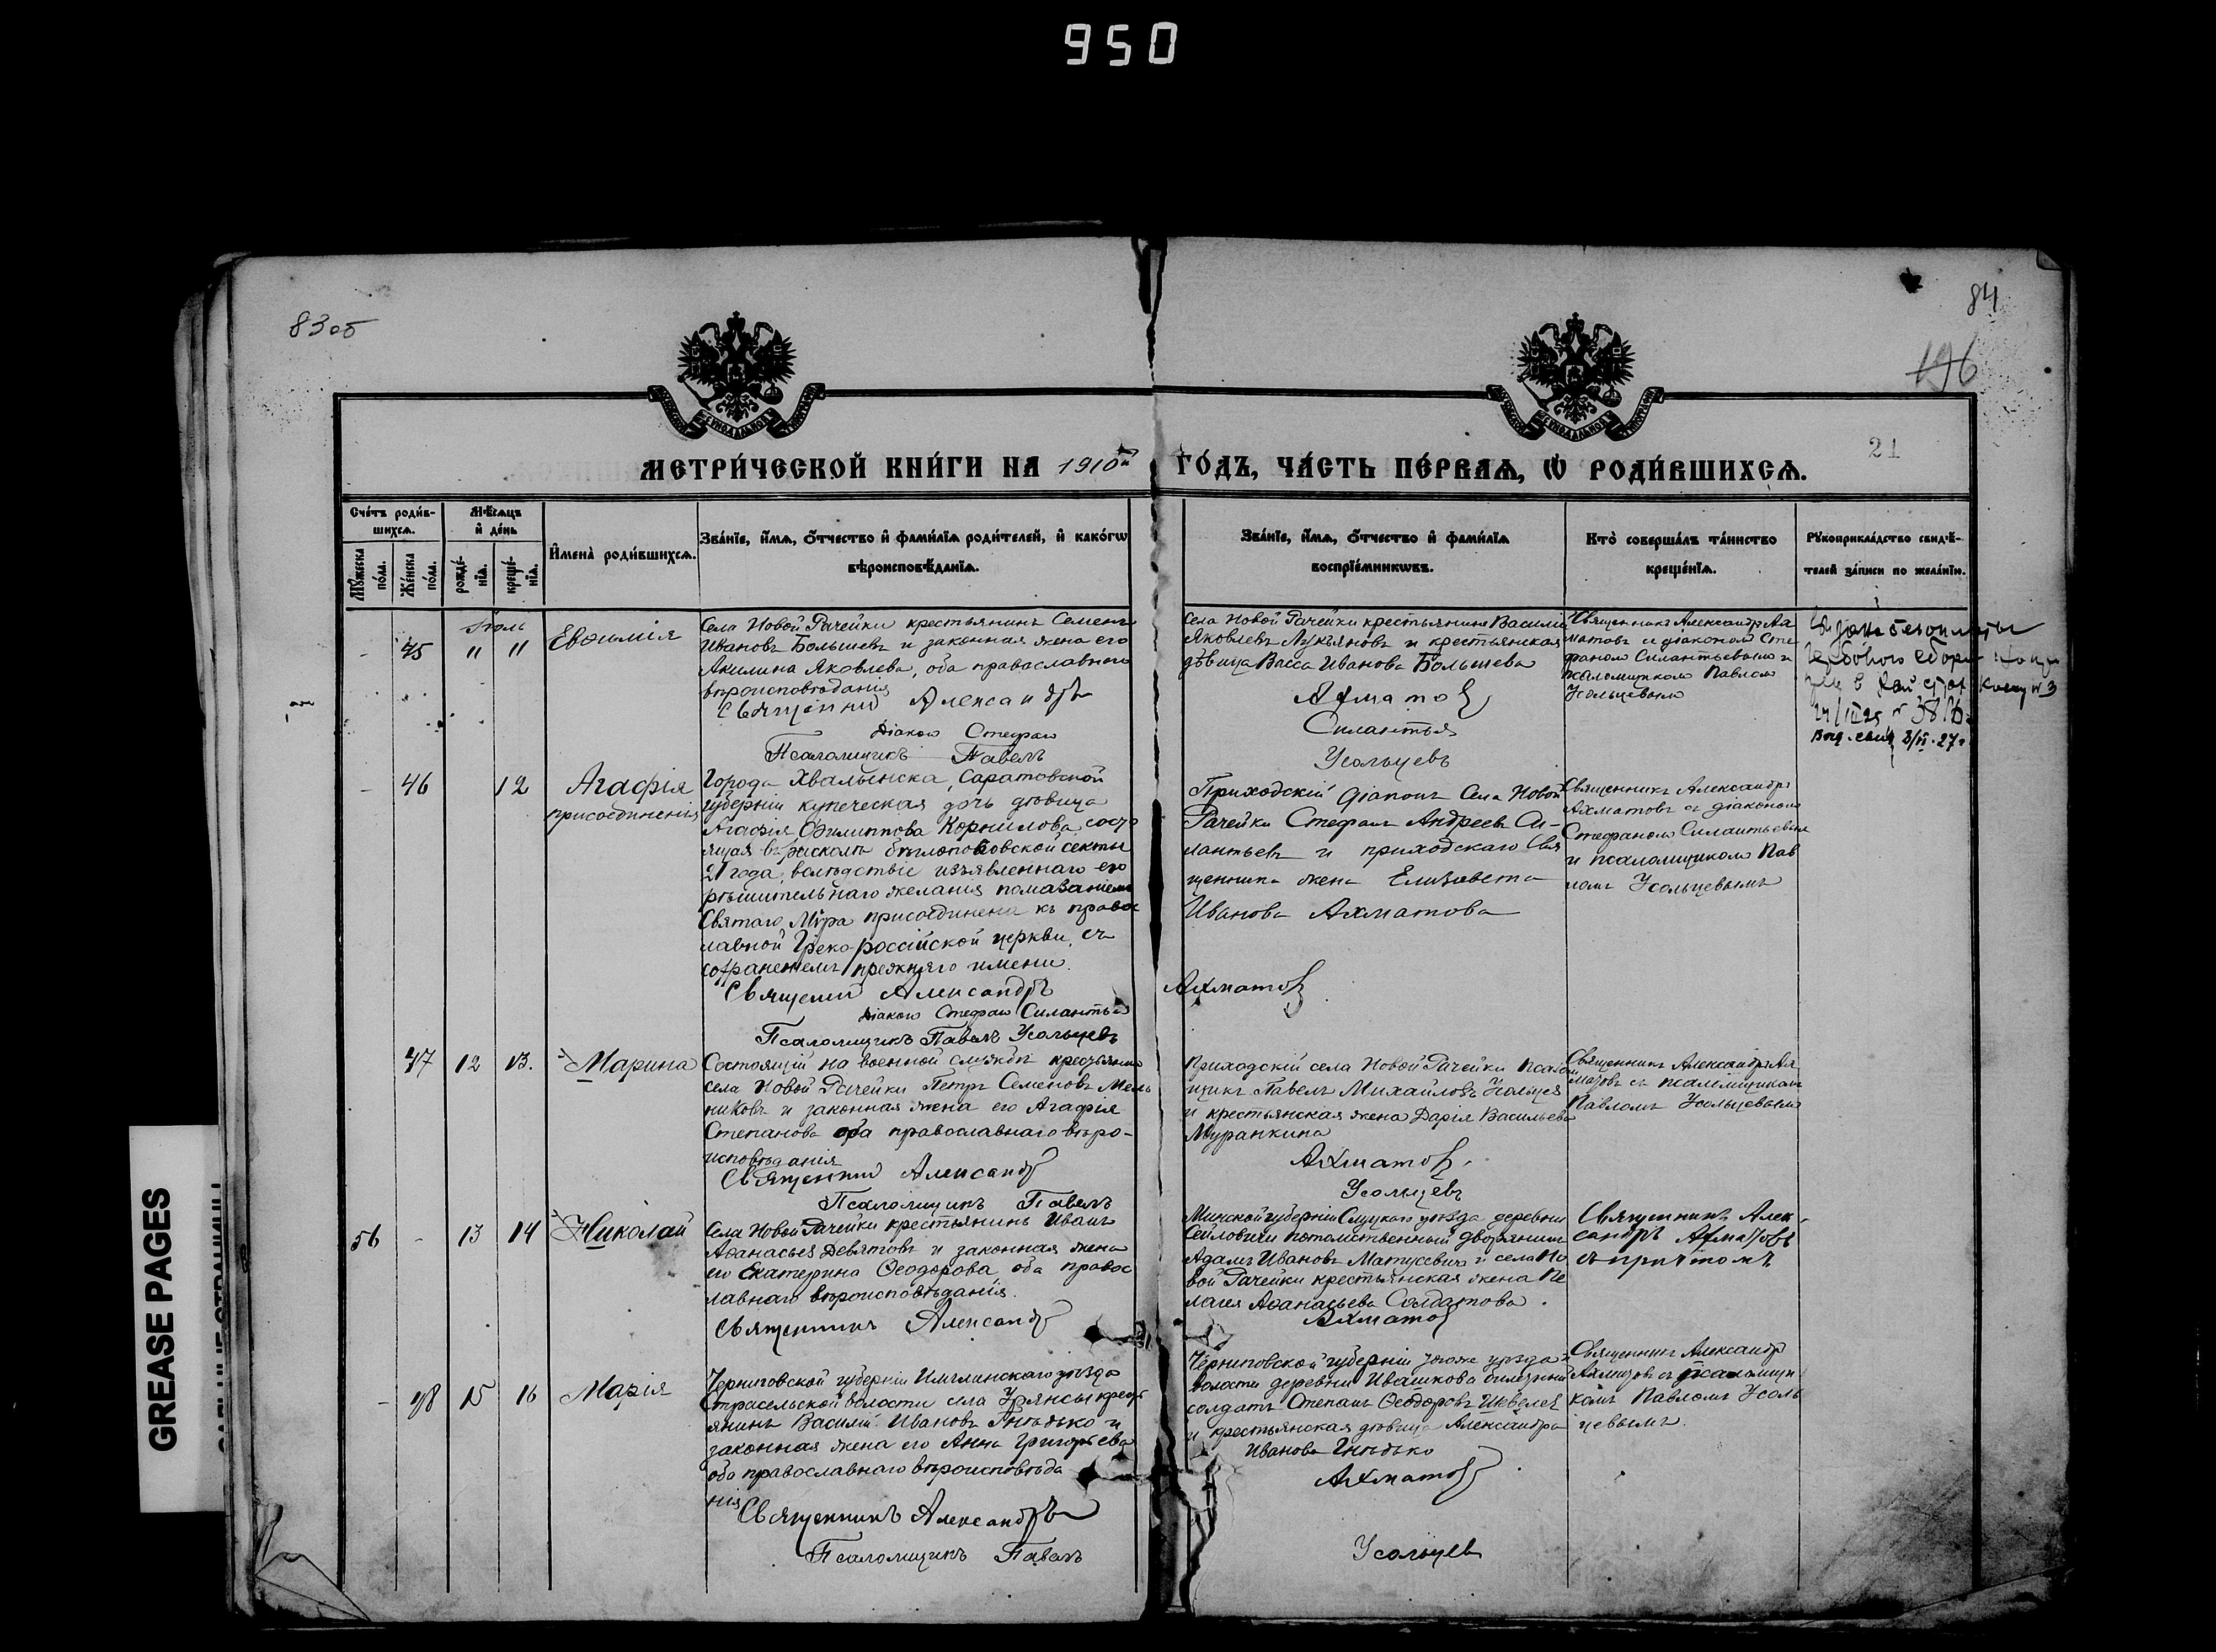 950
83об
84
196
21
МЕТРИ́ЧЕСКОЙ КНИ́ГИ НА 1910й ГО́ДЪ, ЧА́СТЬ ПЕ́РВАѦ, Ѡ РОДИ́ВШИХСѦ.
Сче́тъ роди́в-
шихсѧ.
Мꙋ́жеска по́ла.
Же́нска по́ла.
Мѣ́сѧцъ
и҆ де́нь
рожде́-
нїѧ.
креще́-
нїѧ.
И҆мена̀ роди́вшихсѧ.
Зва́нїе, и҆́мѧ, ѻ҆́тчество и҆ фами́лїѧ роди́телей, и҆ како́гѡ
вѣроисповѣ́данїѧ.
Зва́нїе, и҆́мѧ, ѻ҆́тчество и҆ фами́лїѧ
воспрїе́мникѡвъ.
Кто̀ соверша́лъ та́инство
креще́нїѧ.
Рꙋкоприкла́дство свидѣ́-
телей за́писи по жела́нїю.
Іюль
- 45 " " Евѳимія
Села Новой Рачейки крестьянинъ Семенъ
Ивановъ Большевъ и законная жена его
Акилина Яковлева, оба православнаго
вѣроисповѣданія
Священникъ Александръ
Діаконъ Стефанъ
Псаломщикъ Павелъ
Села Новой Рачейки крестьянинъ Василій
Яковлевъ Лукьяновъ и крестьянская
дѣвица Васса Иванова Большева
Ахматовъ
Силантьев
Усольцевъ
Священникъ Александръ Ах
матовъ и діакономъ Сте
фаномъ Силантьевымъ и
псаломщикомъ Павломъ
Усольцевымъ
гербового сбора
3/VI-27г.
- 46 12 Агафія
присоединенія
Города Хвалынска, Саратовской
губерніи купеческая дочь дѣвица
Агафія Филиппова Корнилова, состо
ящая въ расколѣ бѣглопоповской секты
21 года, вслѣдствіе изъявленнаго ею
рѣшительнаго желанія помазаніемъ
Святаго Мѵра присоединена къ правос
лавной Греко-россійской церкви, съ
сохраненіемъ прежняго имени.
Священникъ Александръ
Діаконъ Стефанъ Силантьев
Псаломщикъ Павелъ Усольцевъ
Приходскій діаконъ Села Новой
Рачейки Стефанъ Андреевъ Си-
лантьевъ и приходскаго Свя
щенника жена Елизавета
Иванова Ахматова
Ахматовъ
Священникъ Александръ
Ахматовъ съ діакономъ
Стефаномъ Силантьевымъ
и псаломщикомъ Пав
ломъ Усольцевымъ
47 12 13. Марина
Состоящій на военной службѣ крестьянинъ
села Новой Рачейки Петръ Семеновъ Мель
никовъ и законная жена его Агафія
Степанова оба православнаго вѣро-
исповѣданія
Священникъ Александръ
Псаломщикъ Павелъ
Приходскій села Новой Рачейки Псалом
щикъ Павелъ Михайловъ Усольцев
и крестьянская жена Дарія Васильева
Муранкина
Ахматовъ.
Усольцевъ
Священникъ Александръ Ах
матовъ съ псаломщикомъ
Павломъ Усольцевымъ
56 - 13 14 Николай
Села Новой Рачейки крестьянинъ Иванъ
Аѳанасьев Девятовъ и законная жена
его Екатерина Ѳеодорова, оба правос
лавнаго вѣроисповѣданія.
Священникъ Александръ
Минской губерніи Слуцкаго уѣзда деревни
Сейловичи потомственный дворянинъ
Адамъ Ивановъ Матусевичъ и села Но
вой Рачейки крестьянская жена Пе
лагея Аѳанасьева Солдатова.
Ахматовъ
Священникъ Алек-
сандръ Ахматовъ
съ причтомъ
- 48 15 16 Марія
Черниговской губерніи Имглинскаго уѣзда
Старосельской волости села Урянсы кресть
янинъ Василій Ивановъ Гнѣдько и
законная жена его Анна Григорьева
оба православнаго вѣроисповѣда
нія
Священникъ Александръ
Псаломщикъ Павелъ
Черниговской губерніи того же уѣзда и
волости деревни Ивашкова билетный
солдатъ Степанъ Ѳеодоровъ Шевелев
и крестьянская дѣвица Александра
Иванова Гнѣдько
Ахматовъ
Усольцев
Священникъ Александръ
Ахматовъ съ псаломщи
комъ Павломъ Усоль
цевымъ.
GREASE PAGES